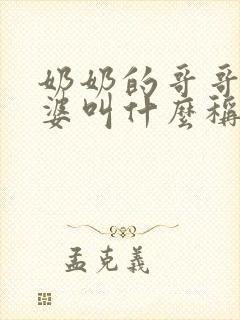 奶奶的哥哥
婆叫什麼稱
孟克義